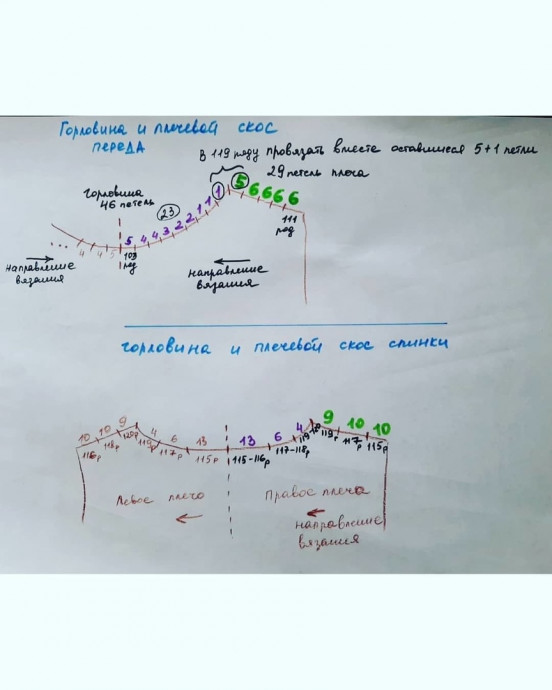 Горловина и плечевой скос
переда
В 119 ряду провязать вместе оставшиеся 5+1 петли
29 петель плеча
горловина
46 петель
23
5 4 4 3 2 2 1 1 1 1
5 6 6 6 6
111
ряд
103
ряд
... 4 4 5
направление
вязания
направление
вязания
горловина и плечевой скос спинки
10 10 9 4 6 13 13 6 4 9 10 10
116р 118р 120р 119р 117р 115р 115-116р 117-118р 119-120 119р 117р 115р
Левое плечо
Правое плеча
направление
вязания